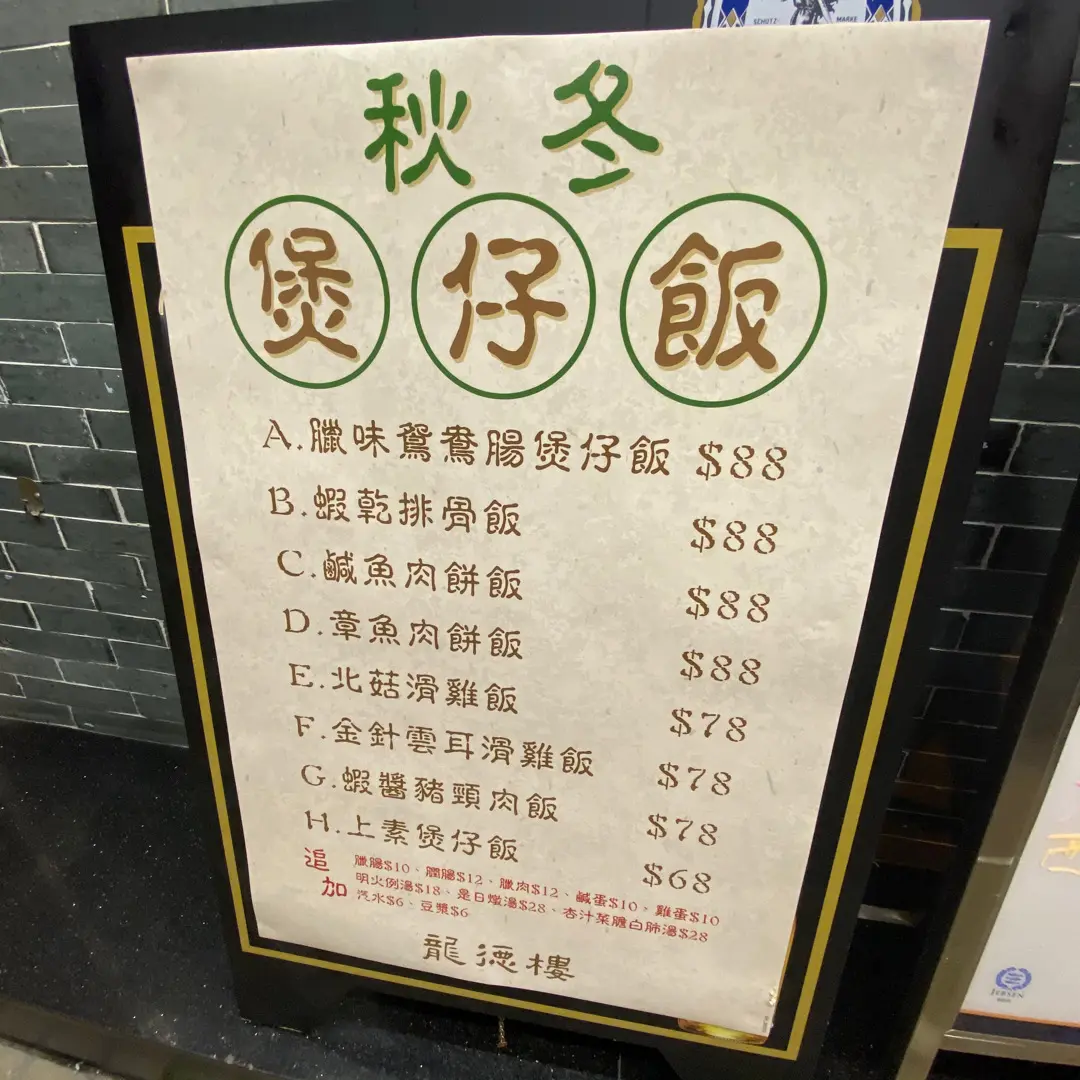 SCHUTZ- MARKE
秋冬
煲仔飯
A.臘味鴛鴦腸煲仔飯 $88
B.蝦乾排骨飯 $88
C.鹹魚肉餅飯 $88
D.章魚肉餅飯 $88
E.北菇滑雞飯 $78
F.金針雲耳滑雞飯 $78
G.蝦醬豬頸肉飯 $78
H.上素煲仔飯 $68
追加
臘腸$10、膶腸$12、臘肉$12、鹹蛋$10、雞蛋$10
明火例湯$18、是日燉湯$28、杏汁菜膽白肺湯$28
汽水$6、豆漿$6
龍德樓
JEBSEN